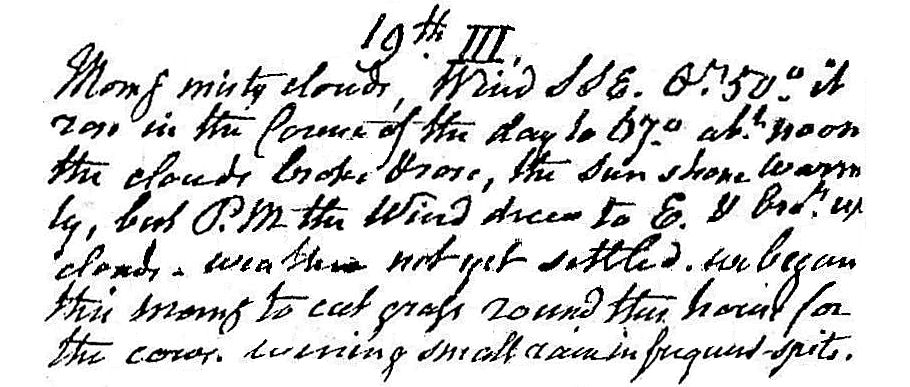 19th III.
Morng misty clouds, Wind SSE. Or. 50°. it
rose in the Course of the day to 67° abt. noon
the clouds broke & rose, the Sun shone warm
ly, but P.M the Wind drew to E. & brot. up
clouds - weather not yet settled. we began
this morng to cut grass round the house for
the cows. evening small rain in frequent spits.